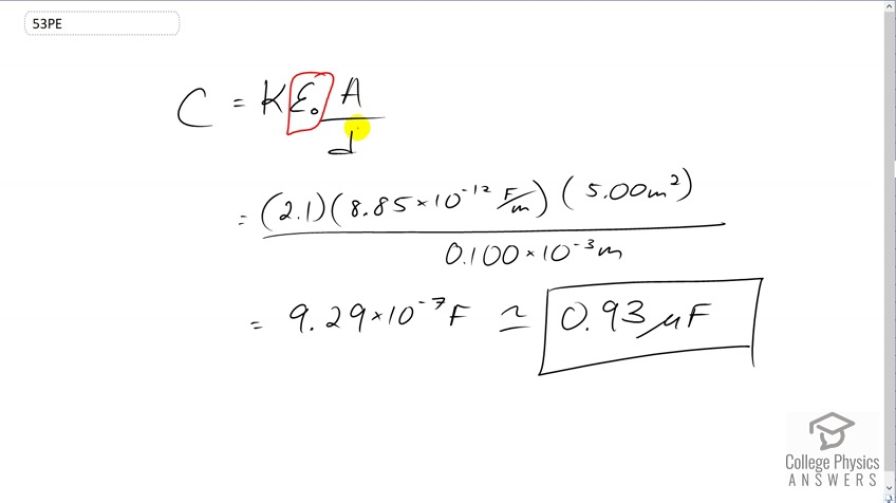 53PE
C = κ ε₀ A / d
= (2.1)(8.85×10⁻¹² F/m)(5.00m²) / 0.100×10⁻³m
= 9.29×10⁻⁷F ≃ 0.93 μF
College Physics
ANSWERS